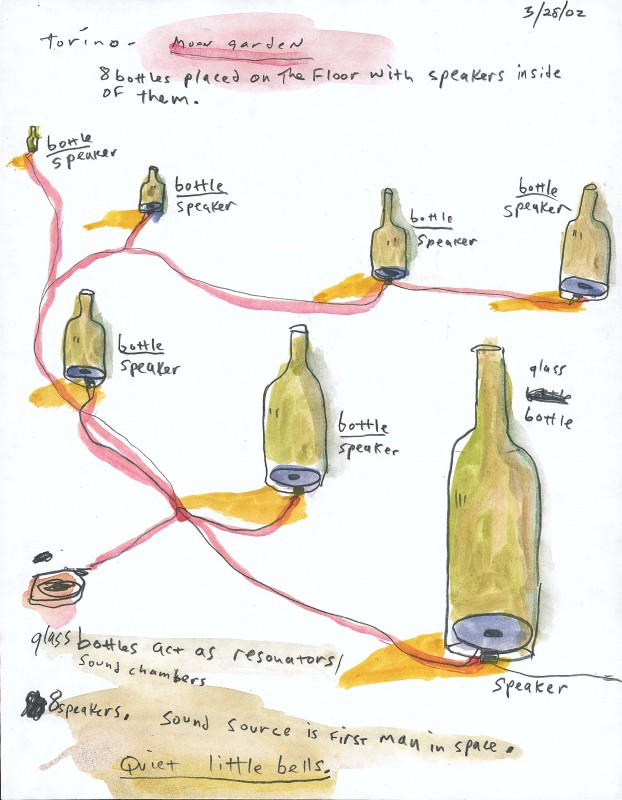 3/28/02
torino - Moon garden
8 bottles placed on The Floor with speakers inside
of them.
bottle
speaker
bottle
speaker
bottle
speaker
bottle
speaker
bottle
speaker
bottle
speaker
glass
bottle
speaker
glass bottles act as resonators/
sound chambers
8 speakers. Sound source is first man in space.
Quiet little bells.